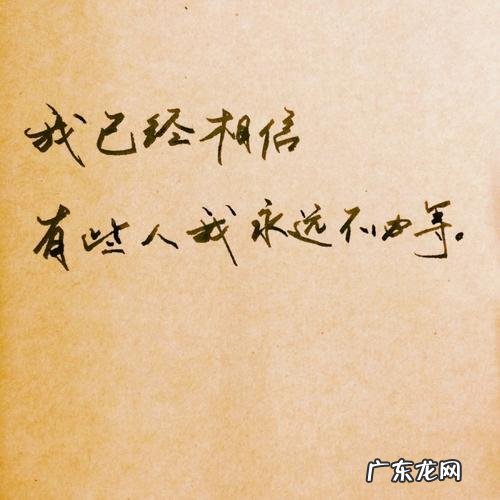 我已经相信
有些人我永远不必等。
广东龙网